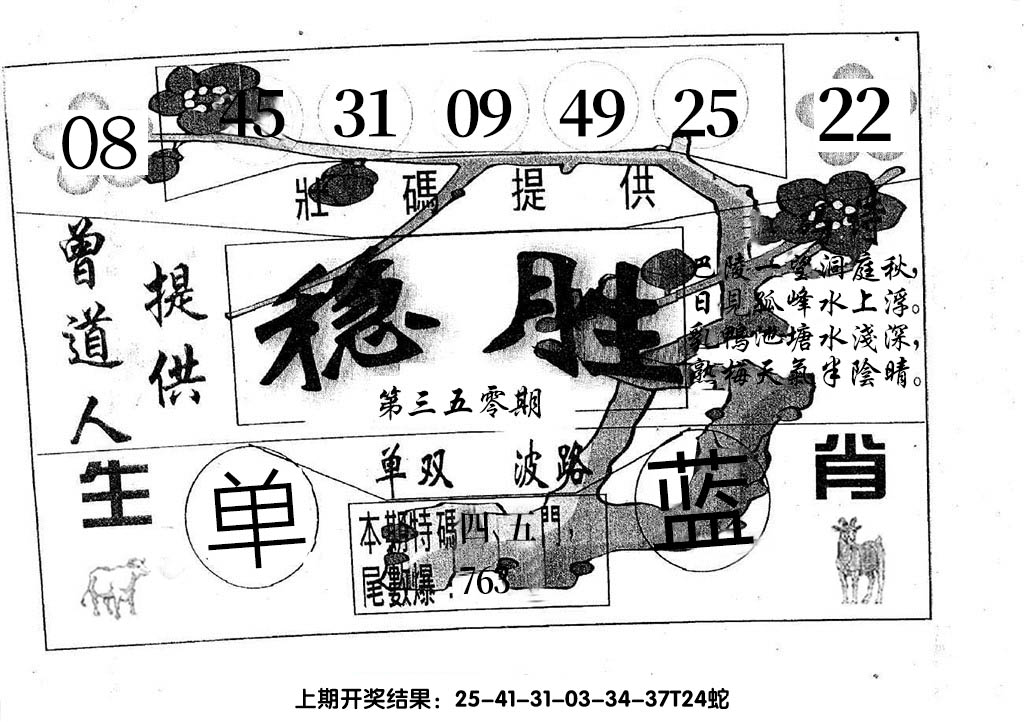 08 45 31 09 49 25 22
壯碼提供
曾道人
提供
稳胜
第三五零期
詩
巴陵一望洞庭秋，
日見孤峰水上浮。
乳鴨池塘水淺深，
熟梅天氣半陰晴。
生肖
单双 波路
单
蓝
本期特碼四、五門，
尾數爆：763
上期开奖结果：25-41-31-03-34-37T24蛇